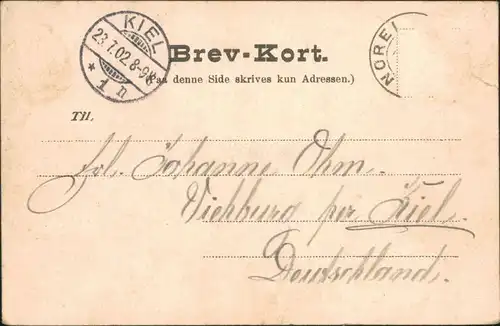 KIEL
23.7.02.8-9V.
* 1 n
NOREI
Brev-Kort.
(Paa denne Side skrives kun Adressen.)
Til.
Frl. Johanne Ohm.
Viehburg per Kiel.
Deutschland.